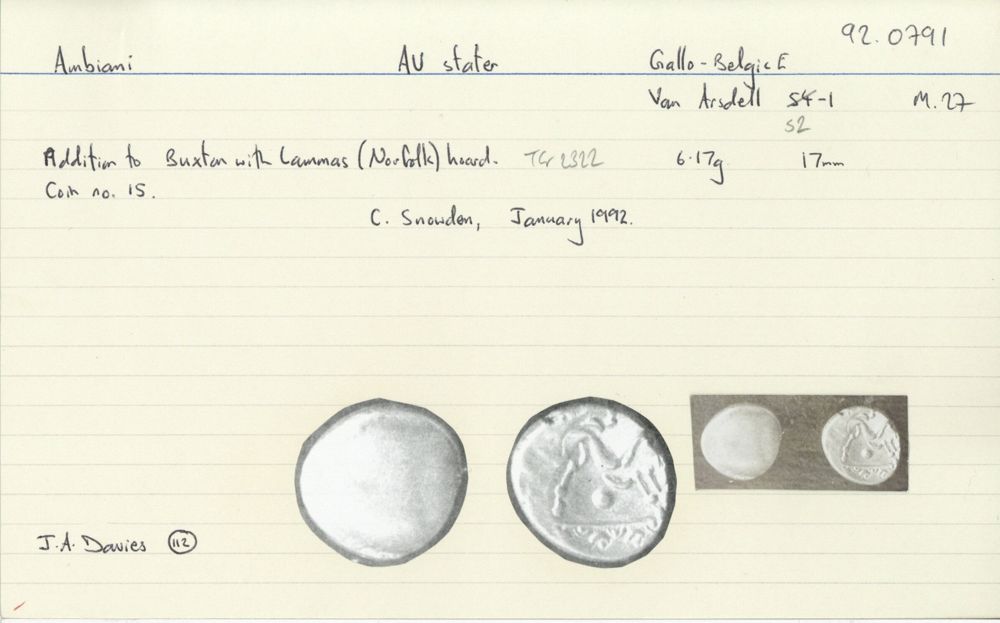 92.0791
Ambiani AU stater Gallo-Belgic E
Van Arsdell 54-1 M.27
52
Addition to Buxton with Lammas (Norfolk) hoard. TGr 2322 6.17g 17mm
Coin no. 15.
C. Snowden, January 1992.
J.A. Davies 112